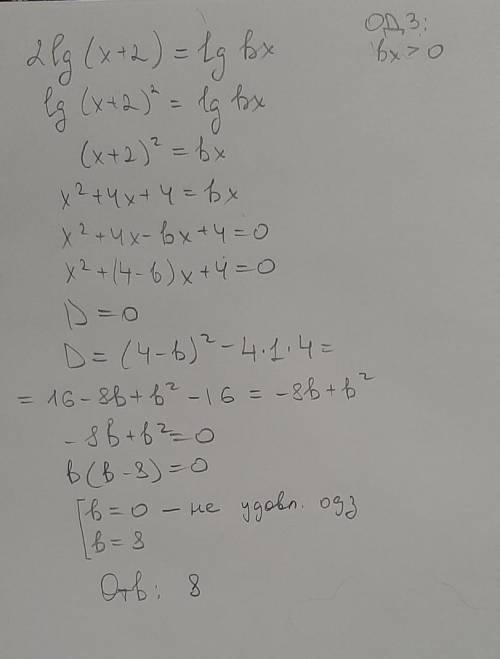 ОДЗ:
bx > 0
2lg (x+2) = lg bx
lg (x+2)² = lg bx
(x+2)² = bx
x² + 4x + 4 = bx
x² + 4x - bx + 4 = 0
x² + (4 - b) x + 4 = 0
D = 0
D = (4 - b)² - 4 · 1 · 4 =
= 16 - 8b + b² - 16 = -8b + b²
-8b + b² = 0
b (b - 8) = 0
[ b = 0 — не удовл. одз
b = 8
Отв: 8